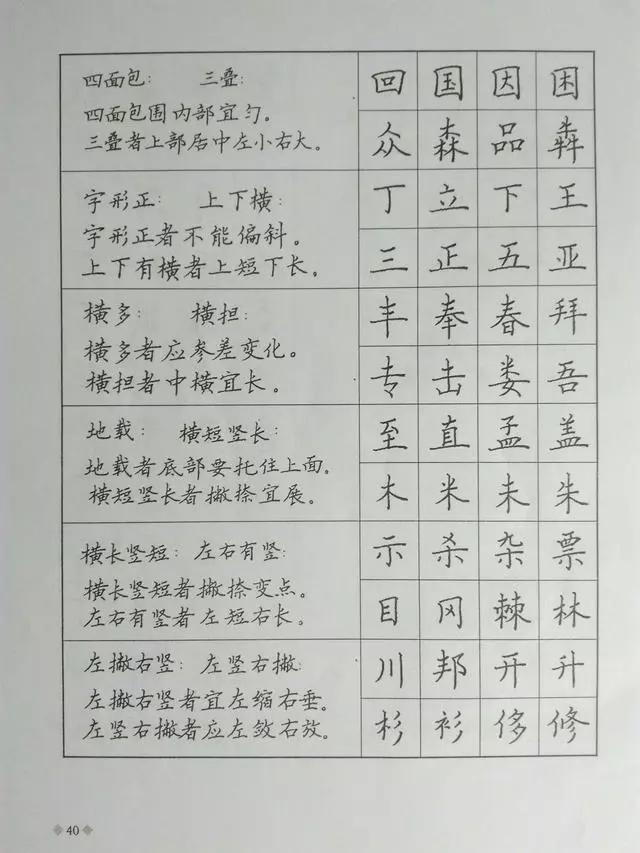 四面包： 三叠：
四面包围内部宜匀。
三叠者上部居中左小右大。
回 国 因 困
众 森 品 犇
字形正： 上下横：
字形正者不能偏斜。
上下有横者上短下长。
丁 立 下 王
三 正 五 亚
横多： 横担：
横多者应参差变化。
横担者中横宜长。
丰 奉 春 拜
专 击 娄 吾
地载： 横短竖长：
地载者底部要托住上面。
横短竖长者撇捺宜展。
至 直 孟 盖
木 米 未 朱
横长竖短： 左右有竖：
横长竖短者撇捺变点。
左右有竖者左短右长。
示 杀 杂 票
目 冈 棘 林
左撇右竖： 左竖右撇：
左撇右竖者宜左缩右垂。
左竖右撇者应左敛右放。
川 邦 开 升
杉 衫 侈 修
40